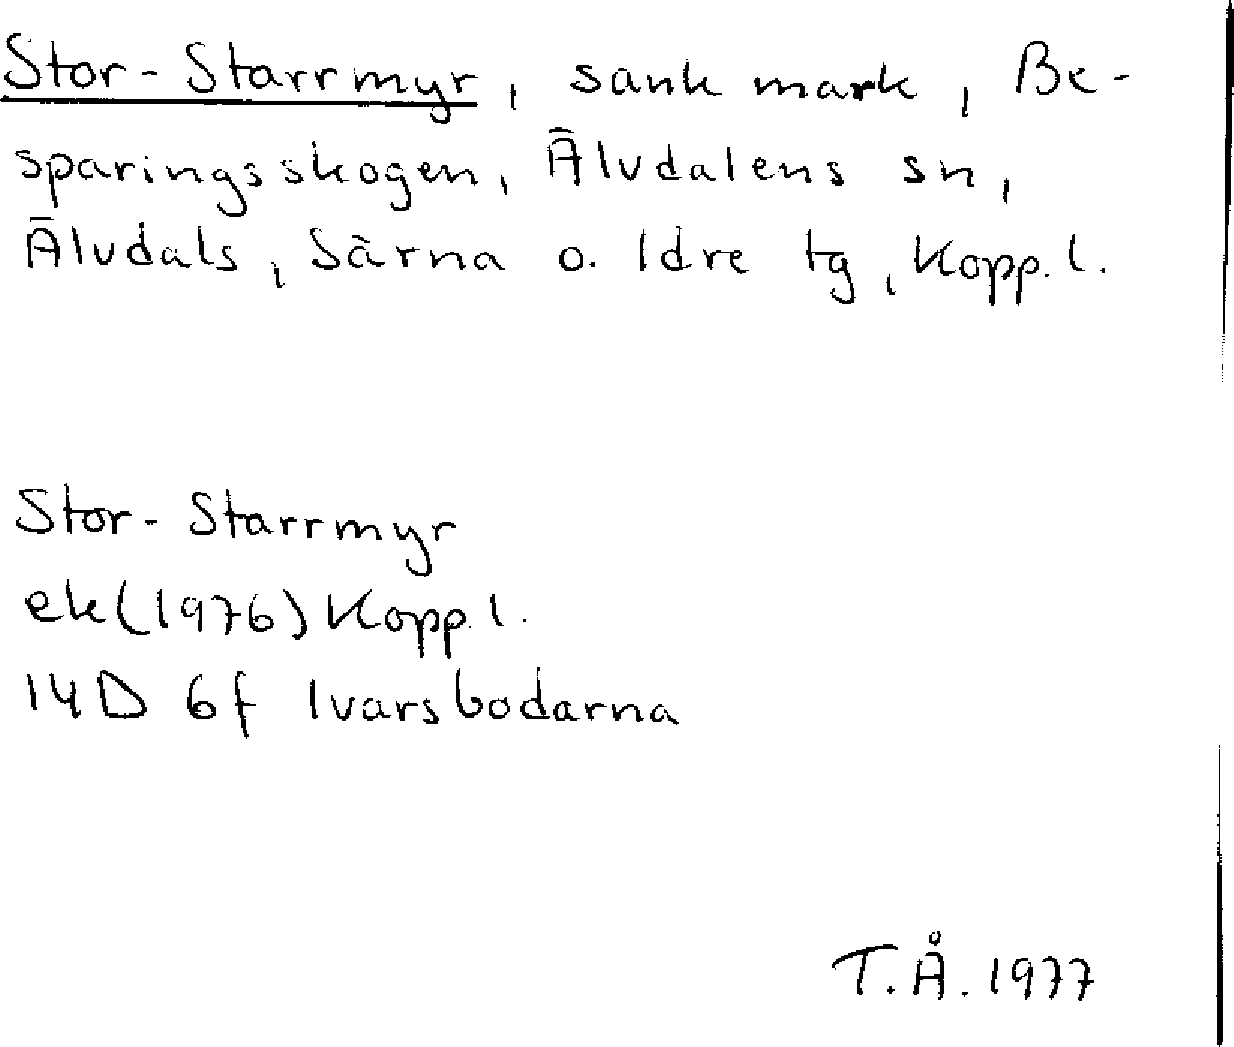 Stor-Starrmyr, sank mark, Be-
sparingsskogen, Älvdalens sn,
Älvdals, Särna o. Idre tg, Kopp. l.
Stor-Starrmyr
ek(1976) Kopp. l.
14D 6f Ivarsbodarna
T.Å. 1977